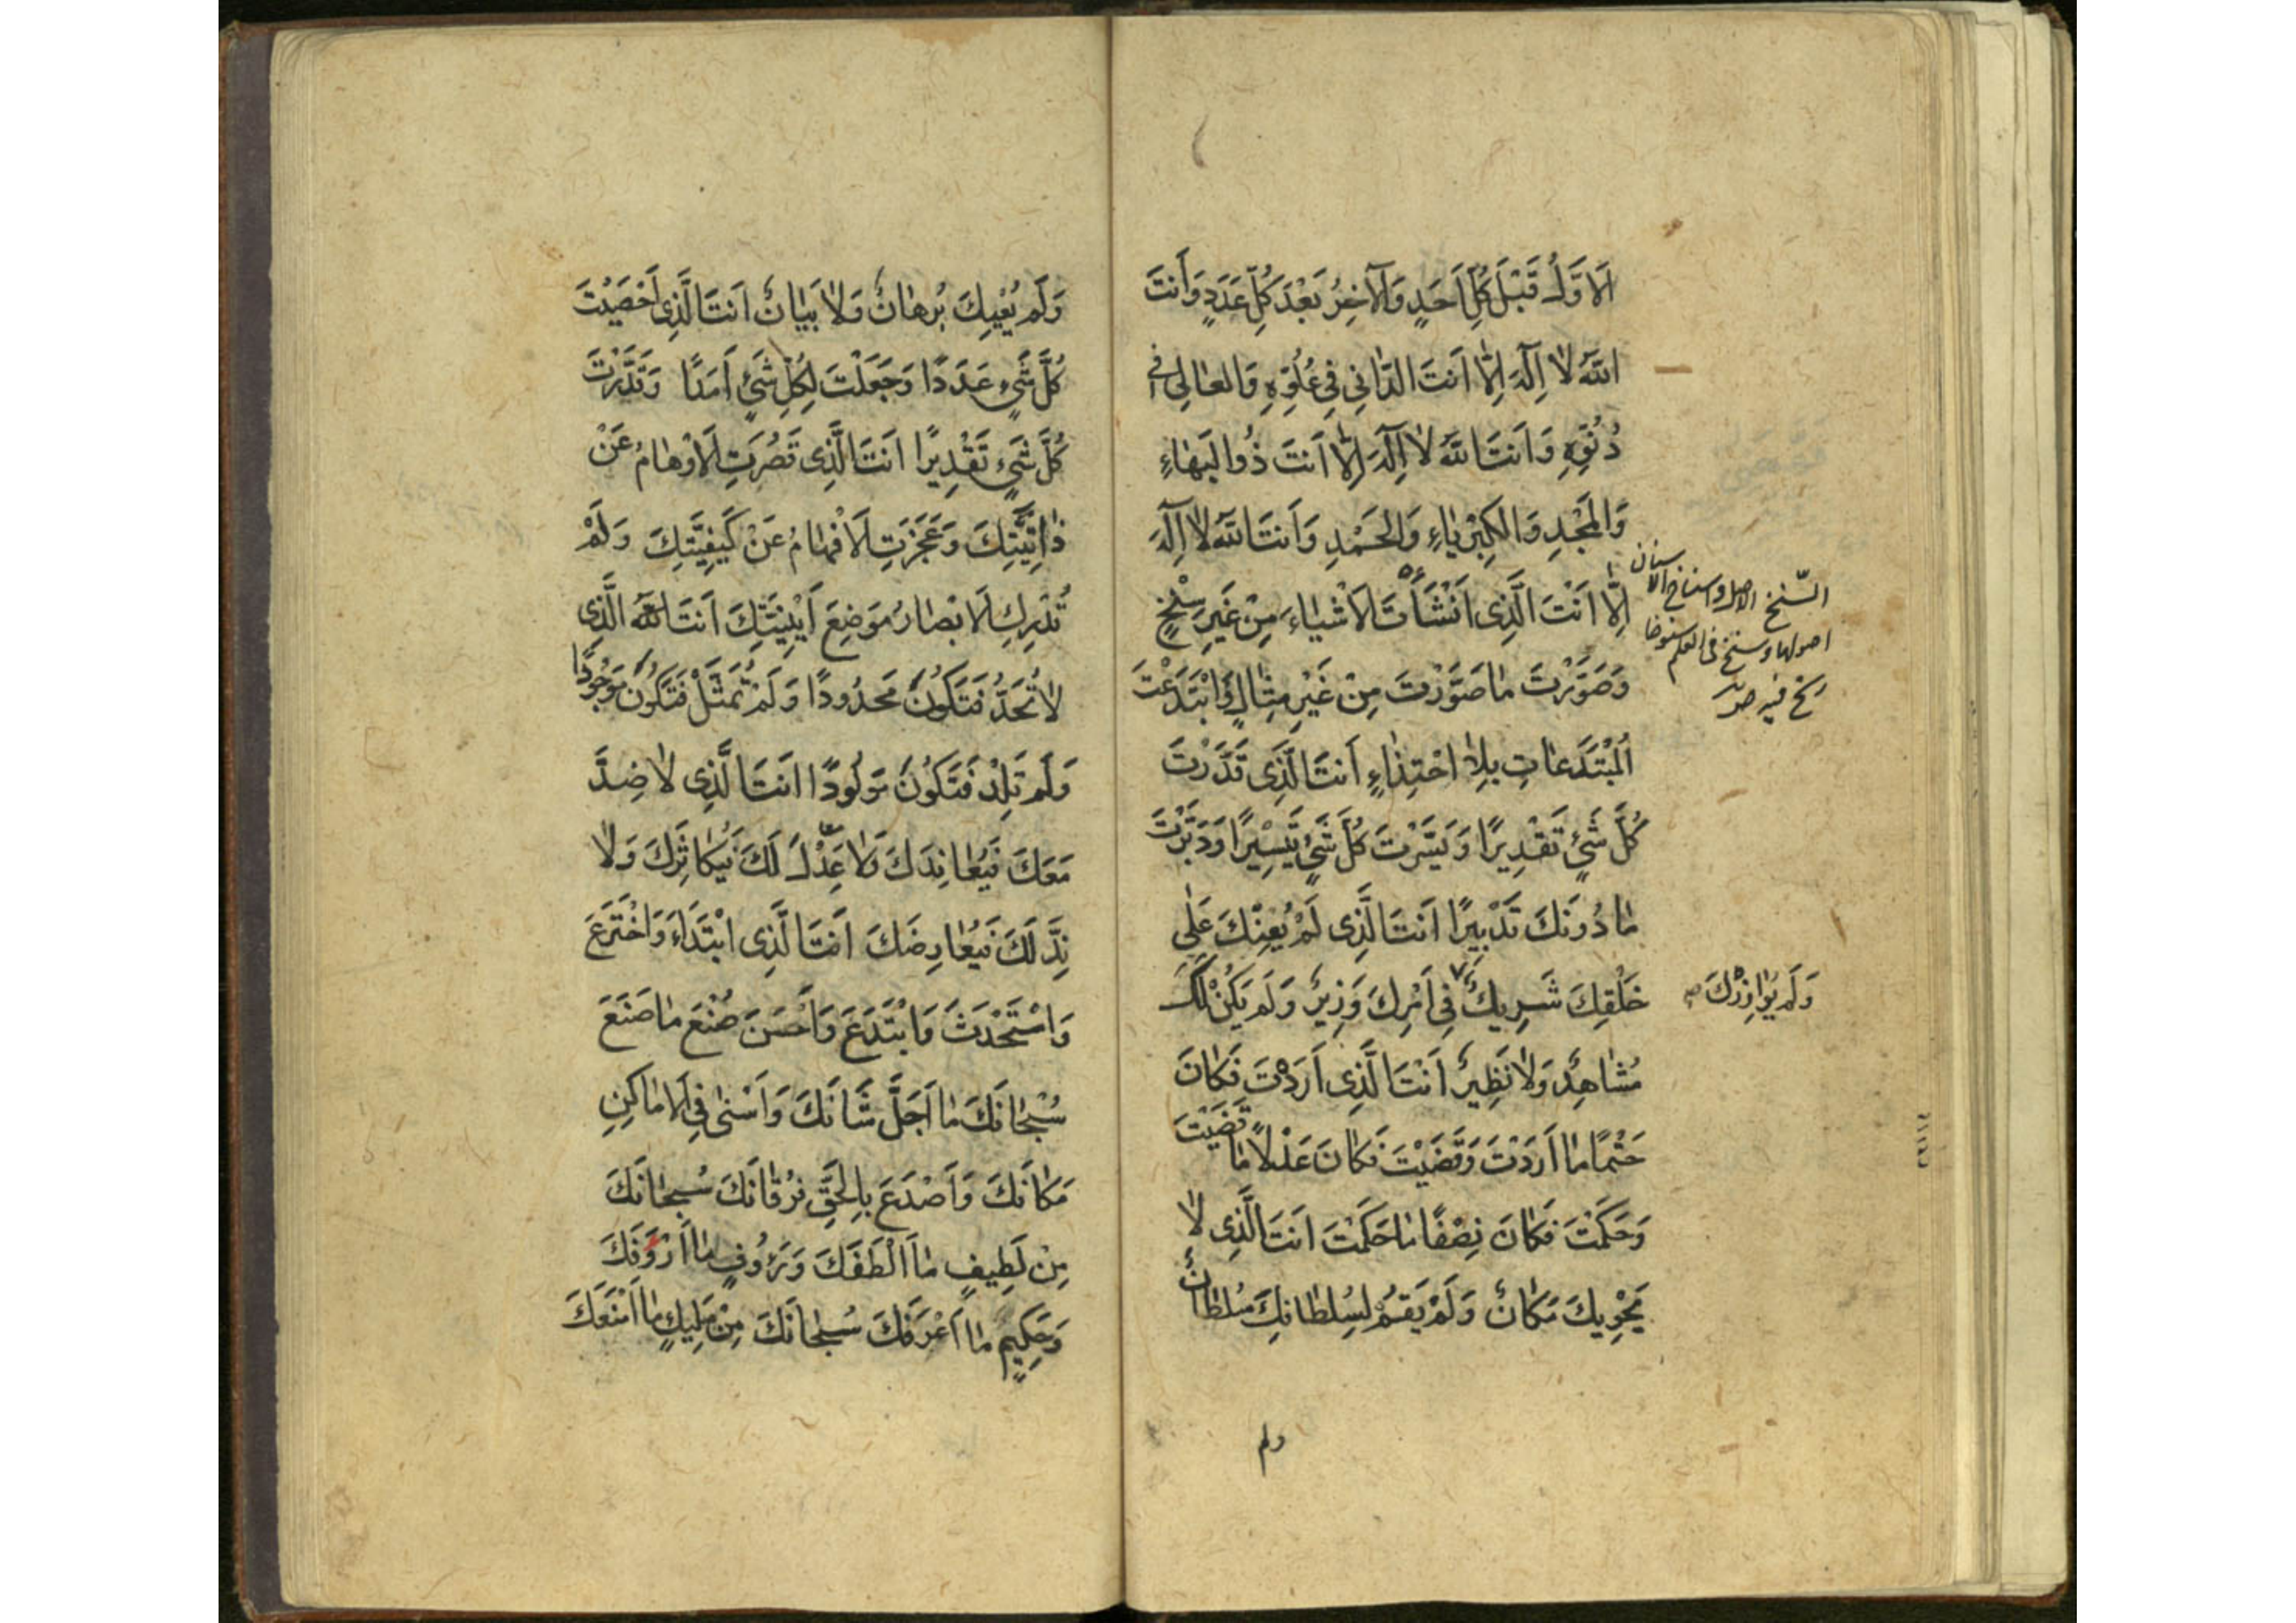 اَلاَوَّلُ قَبْلَ كُلِّ اَحَدٍ وَالآخِرُ بَعْدَ كُلِّ عَدَدٍ وَاَنتَ
اللهُ لاٰ اِلٰهَ اِلّاٰ اَنتَ الدّٰانِي فِي عُلُوِّهِ وَالعٰالِي فِي
دُنُوِّهِ وَاَنتَ اللهُ لاٰ اِلٰهَ اِلّاٰ اَنتَ ذُو البَهٰاءِ
وَالمَجْدِ وَالكِبْرِيٰاءِ وَالحَمْدِ وَاَنتَ اللهُ لاٰ اِلٰهَ
اِلّاٰ اَنْتَ الَّذِي اَنْشَأْتَ الاَشْيٰاءَ مِنْ غَيْرِ سِنْخٍ
السنخ الاصل واسناخ الاسنان
اصولها وسنخ فى العلم سنوخا
رسخ فيه
وَصَوَّرْتَ مٰا صَوَّرْتَ مِنْ غَيْرِ مِثٰالٍ وَابْتَدَعْتَ
المُبْتَدَعٰاتِ بِلاٰ احْتِذٰاءٍ اَنتَ الَّذِي قَدَّرْتَ
كُلَّ شَيْءٍ تَقْدِيرًا وَيَسَّرْتَ كُلَّ شَيْءٍ تَيْسِيرًا وَدَبَّرْتَ
مٰا دُونَكَ تَدْبِيرًا اَنتَ الَّذِي لَمْ يُعِنْكَ عَلٰى
خَلْقِكَ شَرِيكٌ فِي اَمْرِكَ وَزِيرٌ وَلَم يَكُنْ لَكَ
وَلَم يُوٰازِرْكَ
مُشٰاهِدٌ وَلاٰ نَظِيرٌ اَنْتَ الَّذِي اَرَدْتَ فَكٰانَ
حَتْمًا مٰا اَرَدْتَ وَقَضَيْتَ فَكٰانَ عَدْلاً مٰا قَضَيْتَ
وَحَكَمْتَ فَكٰانَ نِصْفًا مٰا حَكَمْتَ اَنتَ الَّذِي لاٰ
يَحْوِيكَ مَكٰانٌ وَلَمْ يَقُمْ لِسُلطٰانِكَ سُلطٰانٌ
ولم
وَلَم يُعْيِكَ بُرهٰانٌ وَلاٰ بَيٰانٌ اَنتَ الَّذِي اَحْصَيْتَ
كُلَّ شَيْءٍ عَدَدًا وَجَعَلْتَ لِكُلِّ شَيْءٍ اَمَدًا وَقَدَّرْتَ
كُلَّ شَيْءٍ تَقْدِيرًا اَنتَ الَّذِي قَصُرَتِ الاَوْهٰامُ عَنْ
ذٰاتِيَّتِكَ وَعَجَزَتِ الاَفْهٰامُ عَنْ كَيْفِيَّتِكَ وَلَمْ
تُدْرِكِ الاَبْصٰارُ مَوْضِعَ اَيْنِيَّتِكَ اَنتَ اللهُ الَّذِي
لاٰ تُحَدُّ فَتَكُونَ مَحدُودًا وَلَمْ تُمَثَّلْ فَتَكُونَ مَوْجُودًا
وَلَم تَلِدْ فَتَكُونَ مَولُودًا اَنتَ الَّذِي لاٰ ضِدَّ
مَعَكَ فَيُعٰانِدَكَ وَلاٰ عِدْلَ لَكَ فَيُكٰاثِرَكَ وَلاٰ
نِدَّ لَكَ فَيُعٰارِضَكَ اَنتَ الَّذِي ابْتَدَاَ وَاخْتَرَعَ
وَاسْتَحْدَثَ وَابْتَدَعَ وَاَحْسَنَ صُنْعَ مٰا صَنَعَ
سُبْحٰانَكَ مٰا اَجَلَّ شَانَكَ وَاَسْنٰى فِي الاَمٰاكِنِ
مَكٰانَكَ وَاَصْدَعَ بِالحَقِّ فُرْقٰانَكَ سُبحٰانَكَ
مِنْ لَطِيفٍ مٰا اَلْطَفَكَ وَرَؤُوفٍ مٰا اَرْؤَفَكَ
وَحَكِيمٍ مٰا اَعْرَفَكَ سُبحٰانَكَ مِنْ مَلِيكٍ مٰا اَمْنَعَكَ